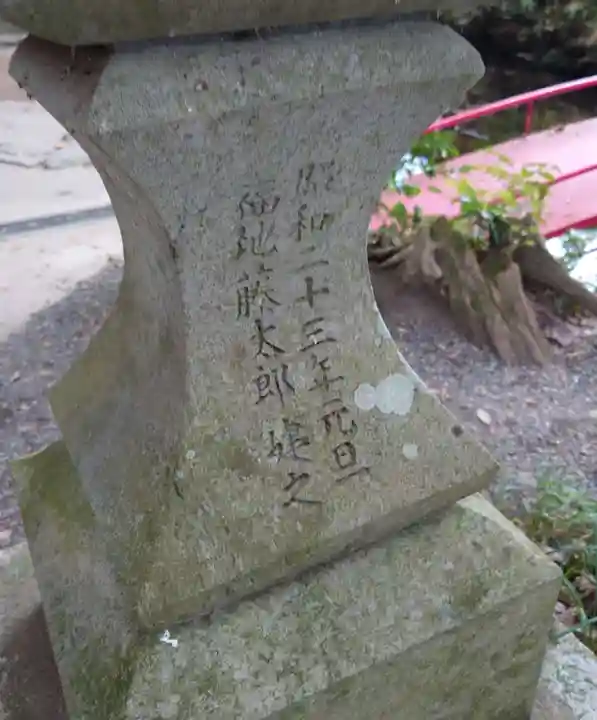 昭和二十三年元旦
福地藤太郎 建之